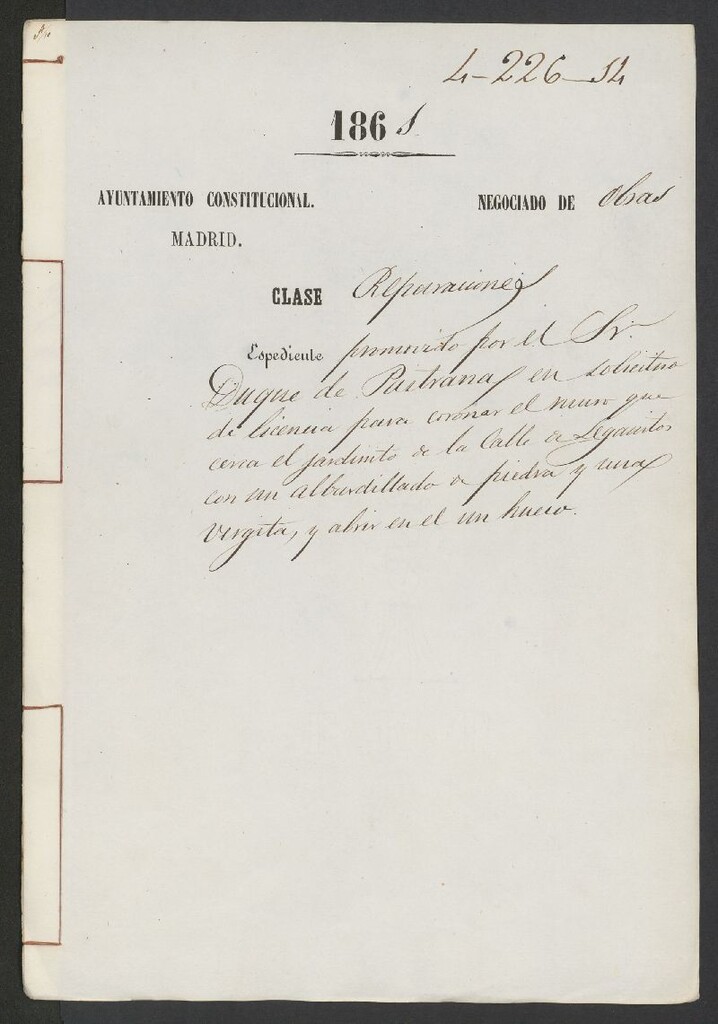 4-226-54
1861
AYUNTAMIENTO CONSTITUCIONAL.
MADRID.
NEGOCIADO DE Obras
CLASE Reparaciones
Espediente promovido por el Sr.
Duque de Pastrana en solicitud
de licencia para coronar el muro que
cerca el jardinito de la Calle de Leganitos
con un albardillado de piedra y una
vergita, y abrir en el un hueco.